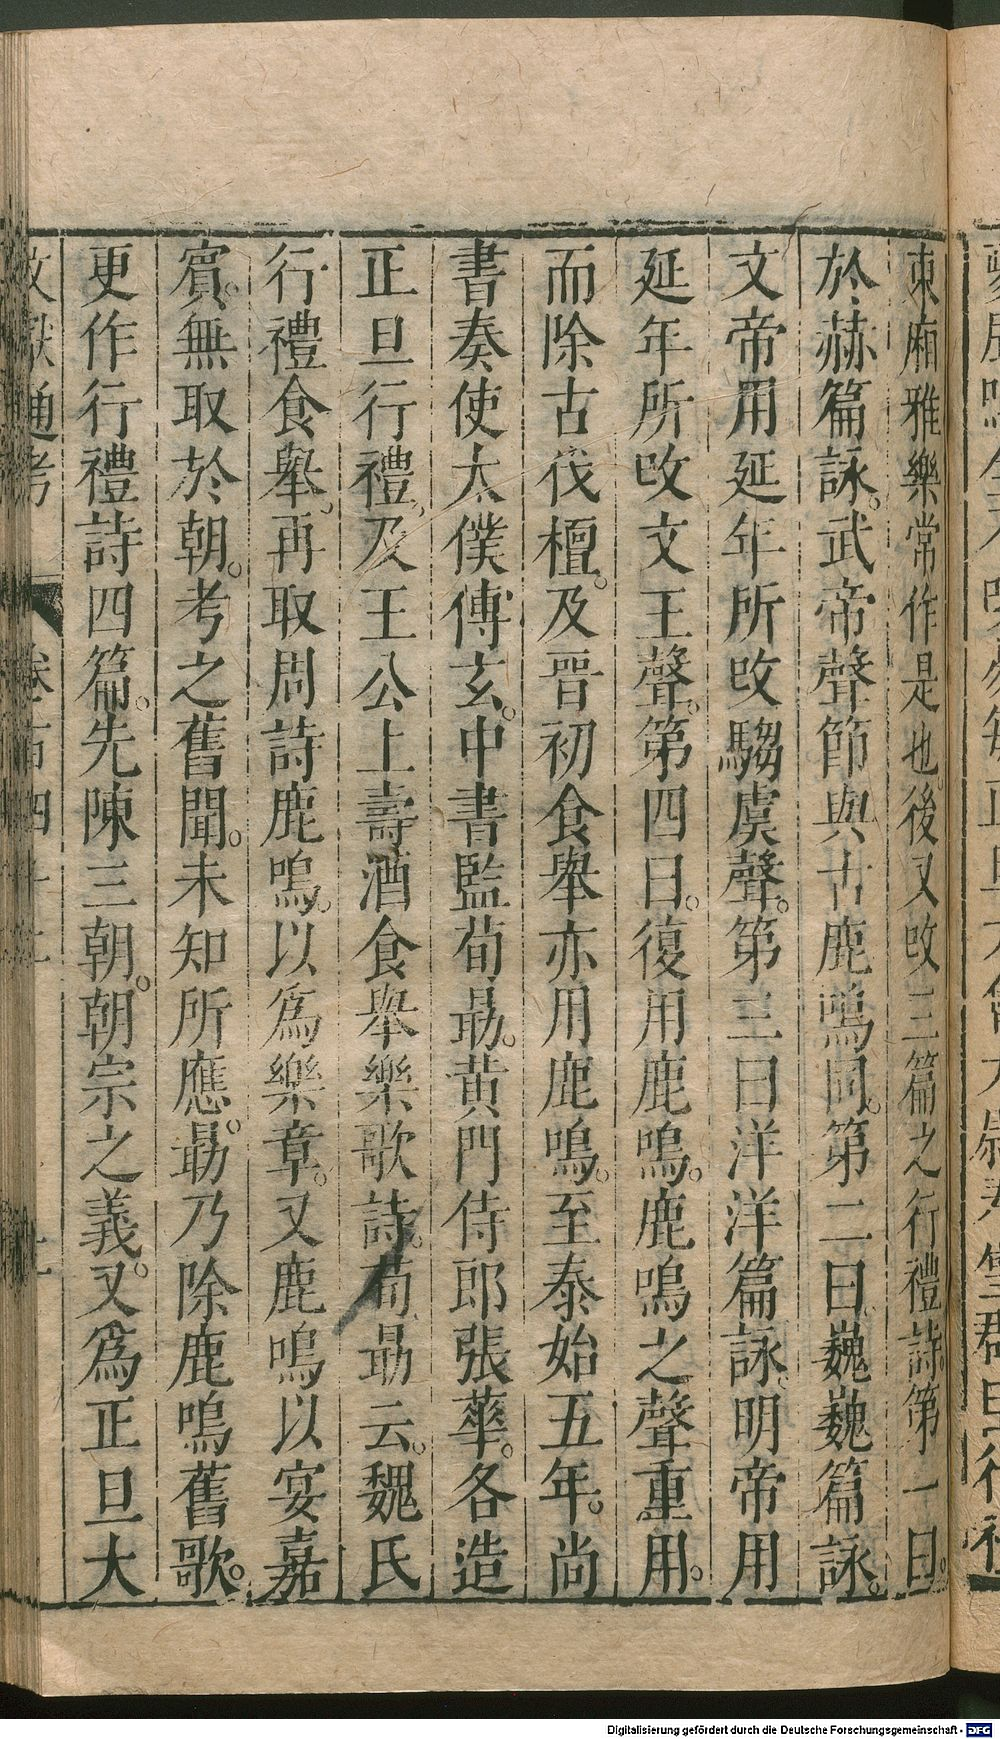 東廂雅樂常作是也。後又攺三篇之行禮詩。第一曰。
於赫篇詠。武帝聲節與古鹿鳴同。第二曰。巍巍篇詠。
文帝用延年所攺騶虞聲。第三曰洋洋篇詠。明帝用
延年所攺文王聲。第四曰。復用鹿鳴。鹿鳴之聲重用。
而除古伐檀。及晋初食舉亦用鹿鳴。至泰始五年。尚
書奏使太僕傅玄。中書監荀勗。黄門侍郎張華。各造
正旦行禮。及王公上壽酒食舉樂歌詩。荀勗云。魏氏
行禮食舉。再取周詩鹿鳴。以爲樂章。又鹿鳴以宴嘉
賓。無取於朝。考之舊聞。未知所應。勗乃除鹿鳴舊歌。
更作行禮詩四篇。先陳三朝。朝宗之義。又爲正旦大
通考
Digitalisierung gefördert durch die Deutsche Forschungsgemeinschaft - DFG